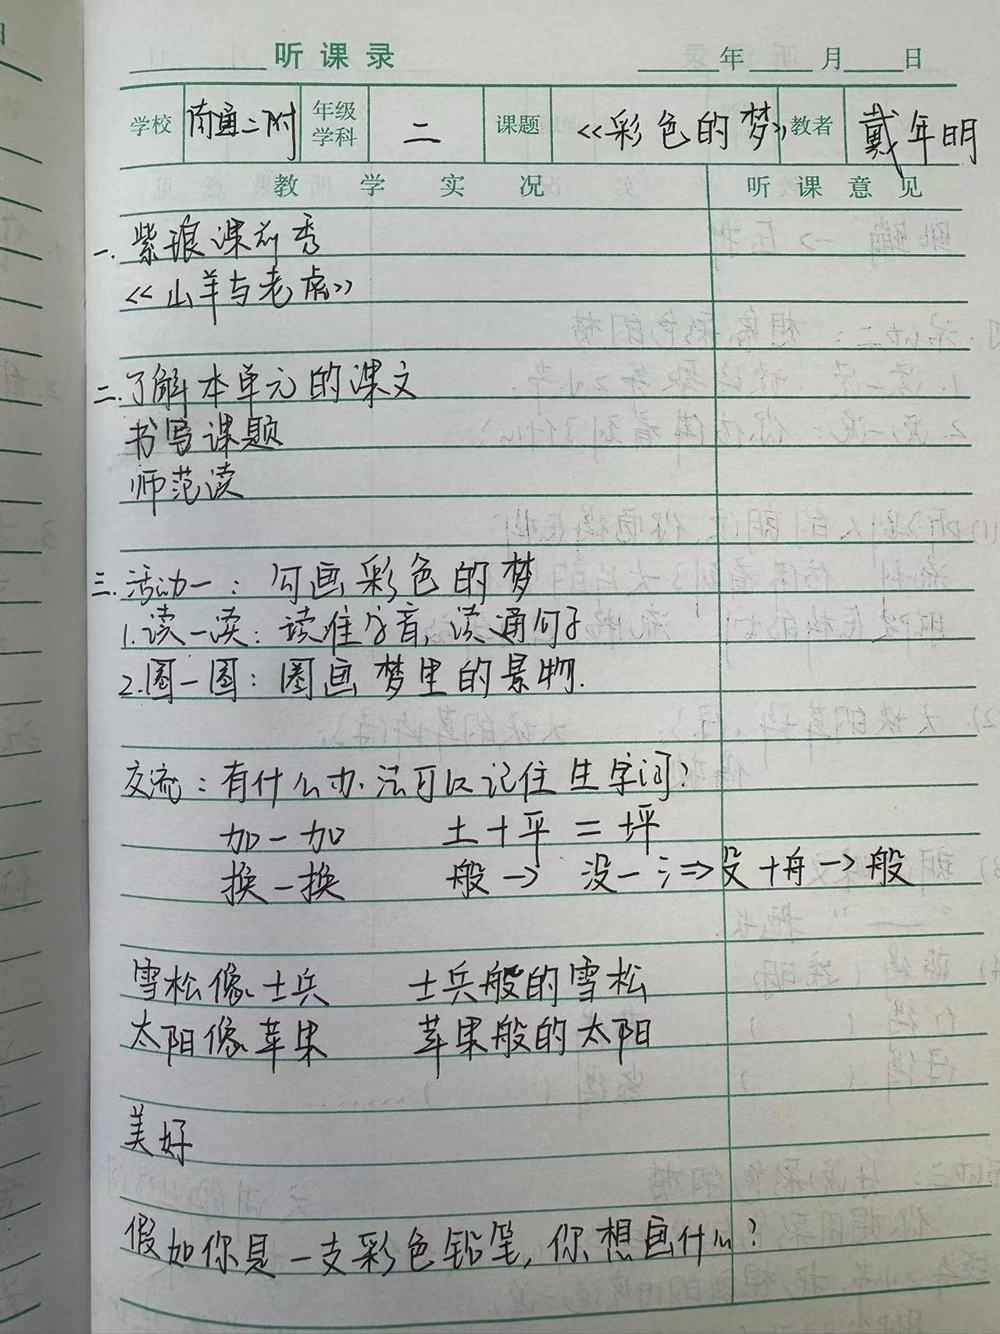 听课录
年 月 日
学校 南通二附 年级学科 二 课题 《彩色的梦》 教者 戴年明
教学实况 听课意见
一. 紫琅课前秀
《山羊与老虎》
二. 了解本单元的课文
书写课题
师范读
三. 活动一：勾画彩色的梦
1. 读一读：读准字音，读通句子
2. 圈一圈：圈画梦里的景物.
交流：有什么办法可以记住生字词？
加一加 土+平=坪
换一换 般→ 没-氵⇒殳+舟→般
雪松像士兵 士兵般的雪松
太阳像苹果 苹果般的太阳
美好
假如你是一支彩色铅笔，你想画什么？